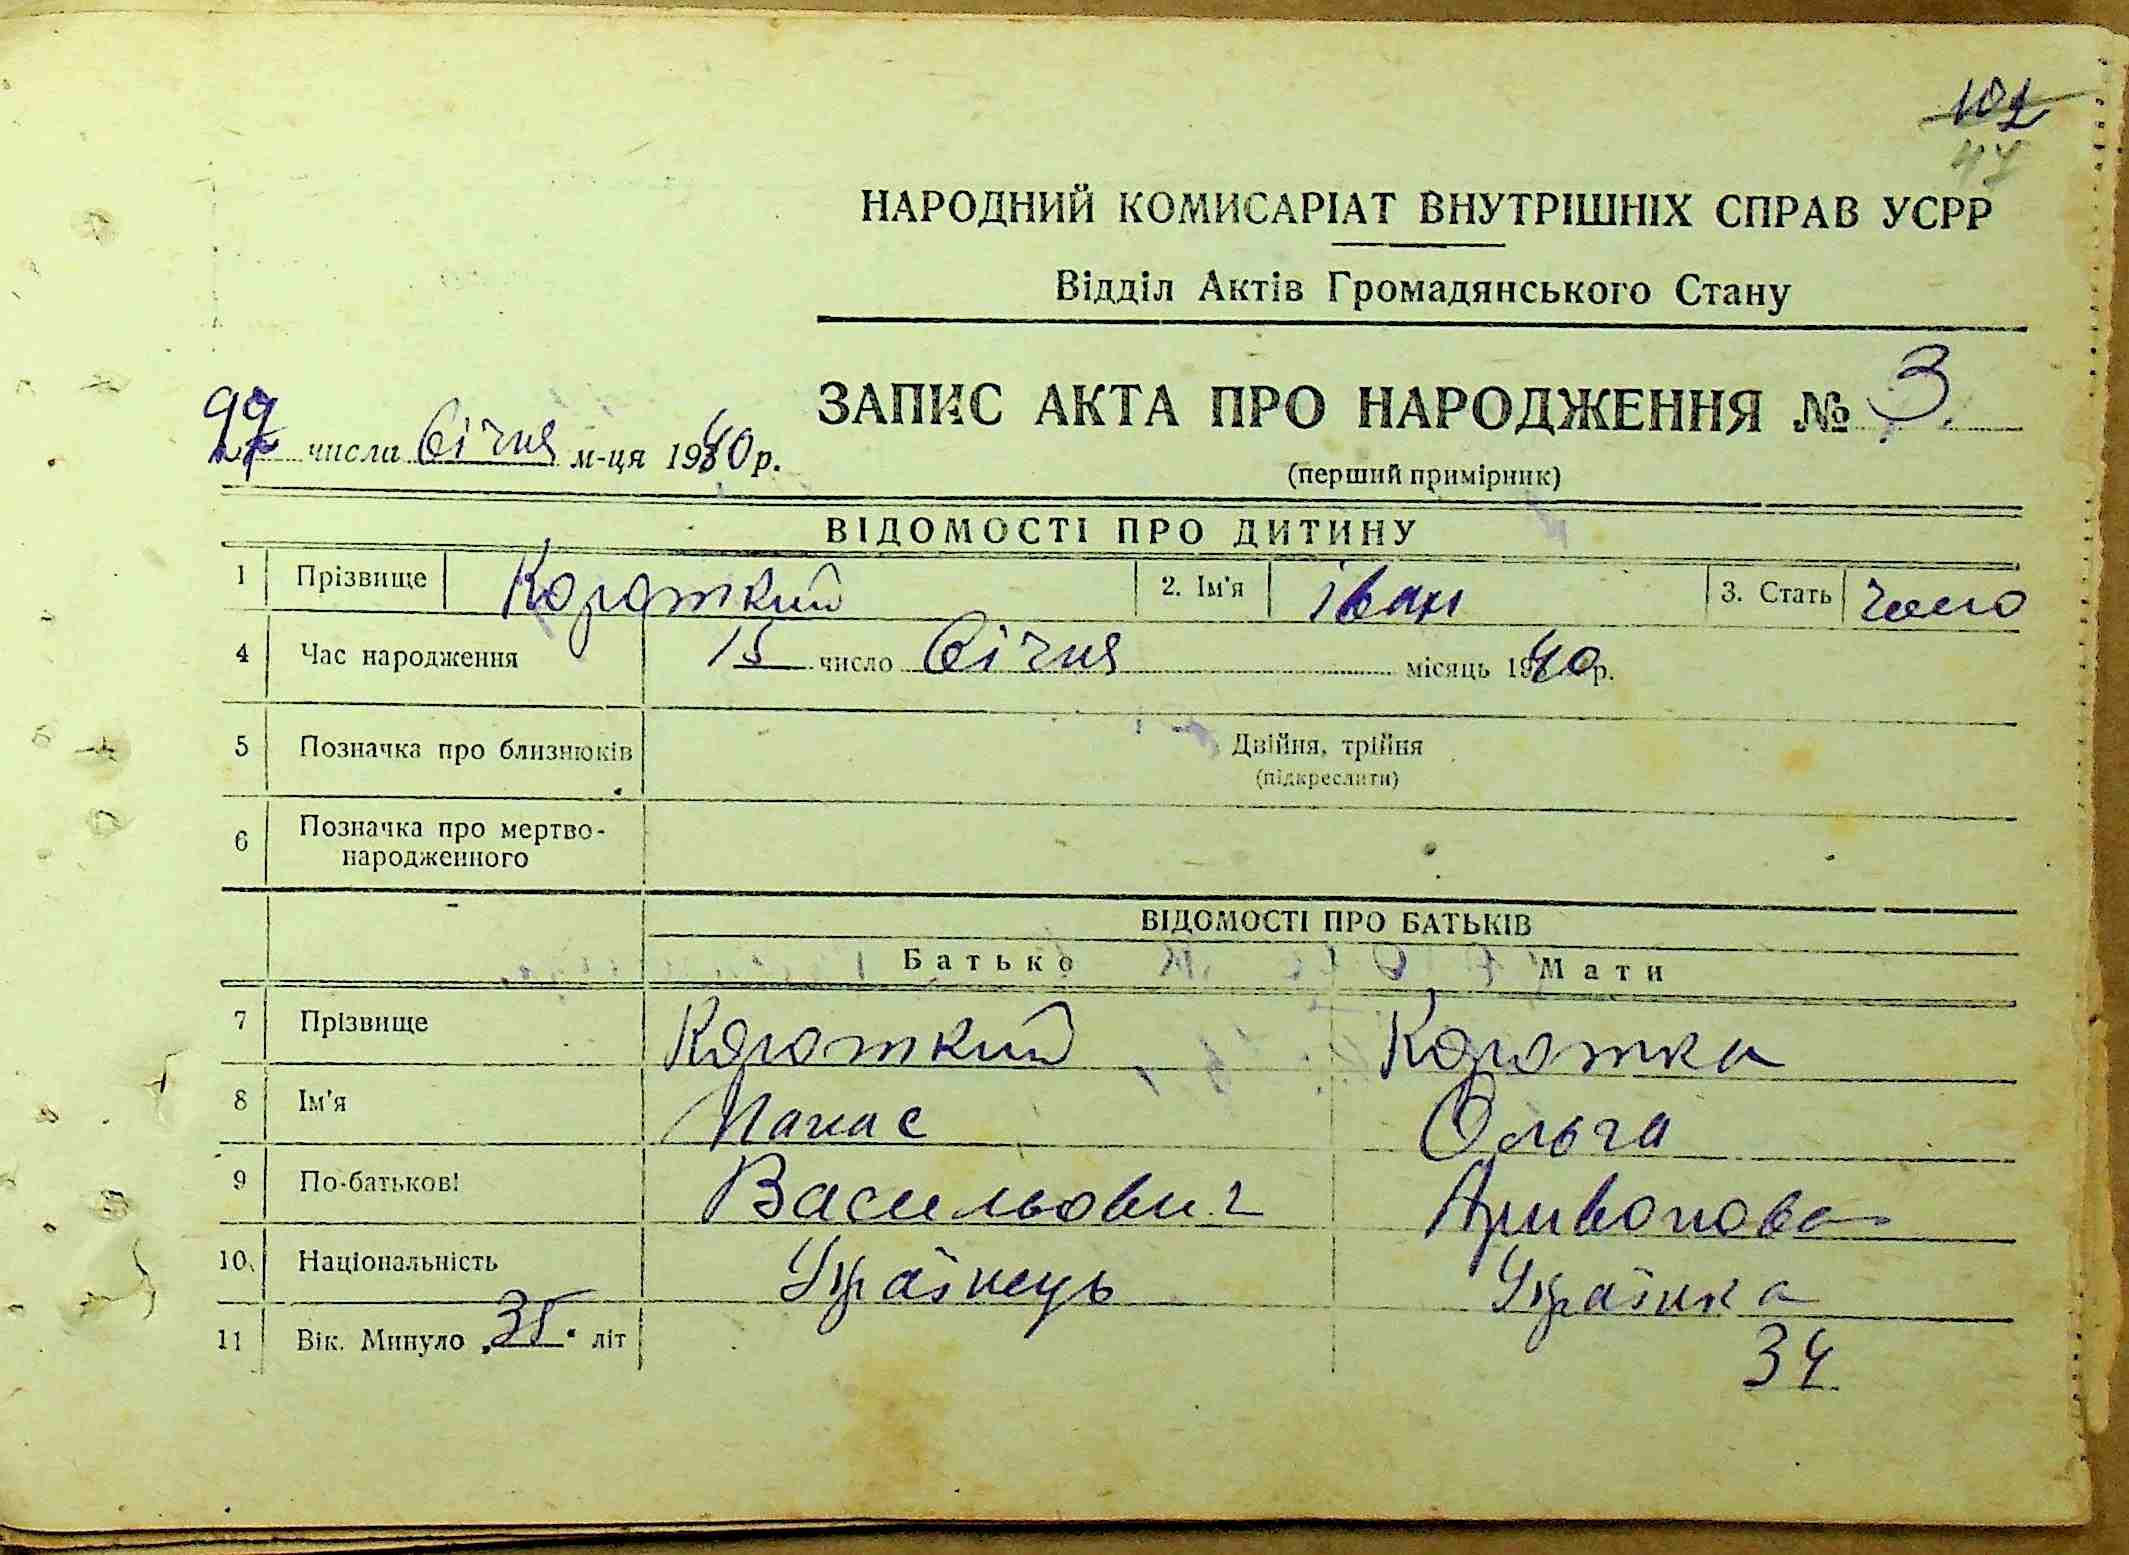 102
47
НАРОДНИЙ КОМИСАРІАТ ВНУТРІШНІХ СПРАВ УСРР
Відділ Актів Громадянського Стану
ЗАПИС АКТА ПРО НАРОДЖЕННЯ № 3.
числа Січня м-ця 1940 р.
(перший примірник)
ВІДОМОСТІ ПРО ДИТИНУ
1 Прізвище Короткий 2. Ім'я Іван 3. Стать чоло
4 Час народження 15 число Січня місяць 1940 р.
5 Позначка про близнюків Двійня, трійня
(підкреслити)
6 Позначка про мертво-
народженного
ВІДОМОСТІ ПРО БАТЬКІВ
Батько Мати
7 Прізвище Короткий Коротка
8 Ім'я Панас Ольга
9 По-батькові Васильович
10 Національність Українець Українка
11 Вік. Минуло 35 літ 34